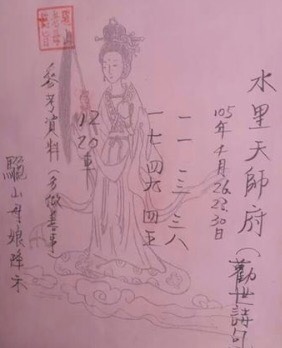 水里天師府(勸世詩句
105年4月26.28.30日
二一 二三 三八
一七 四六 四五
12.20車
參考資料(多做善事)
驪山母娘降示